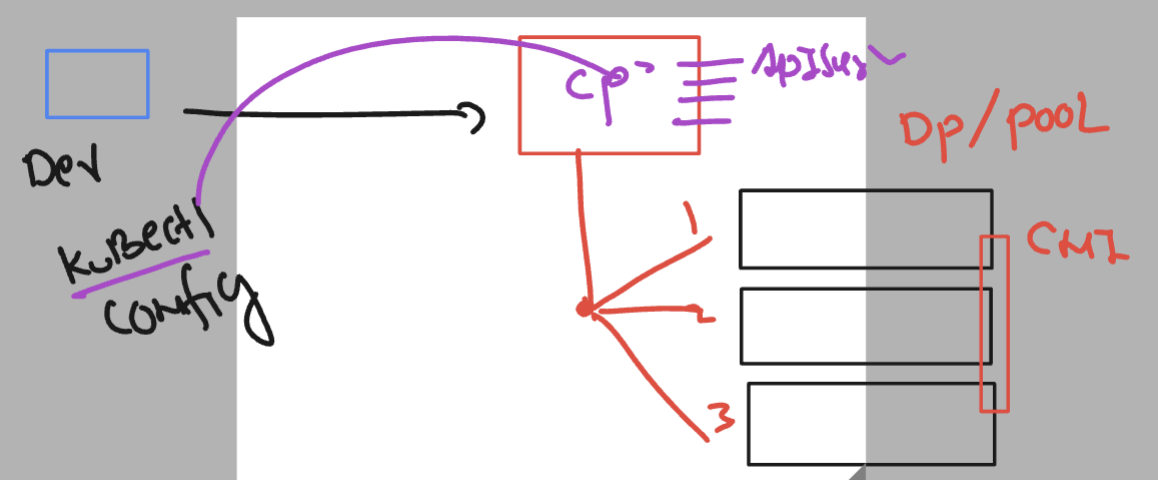 Dev
KuBectl
config
CP
ApISer
Dp/pooL
1
2
3
CNI